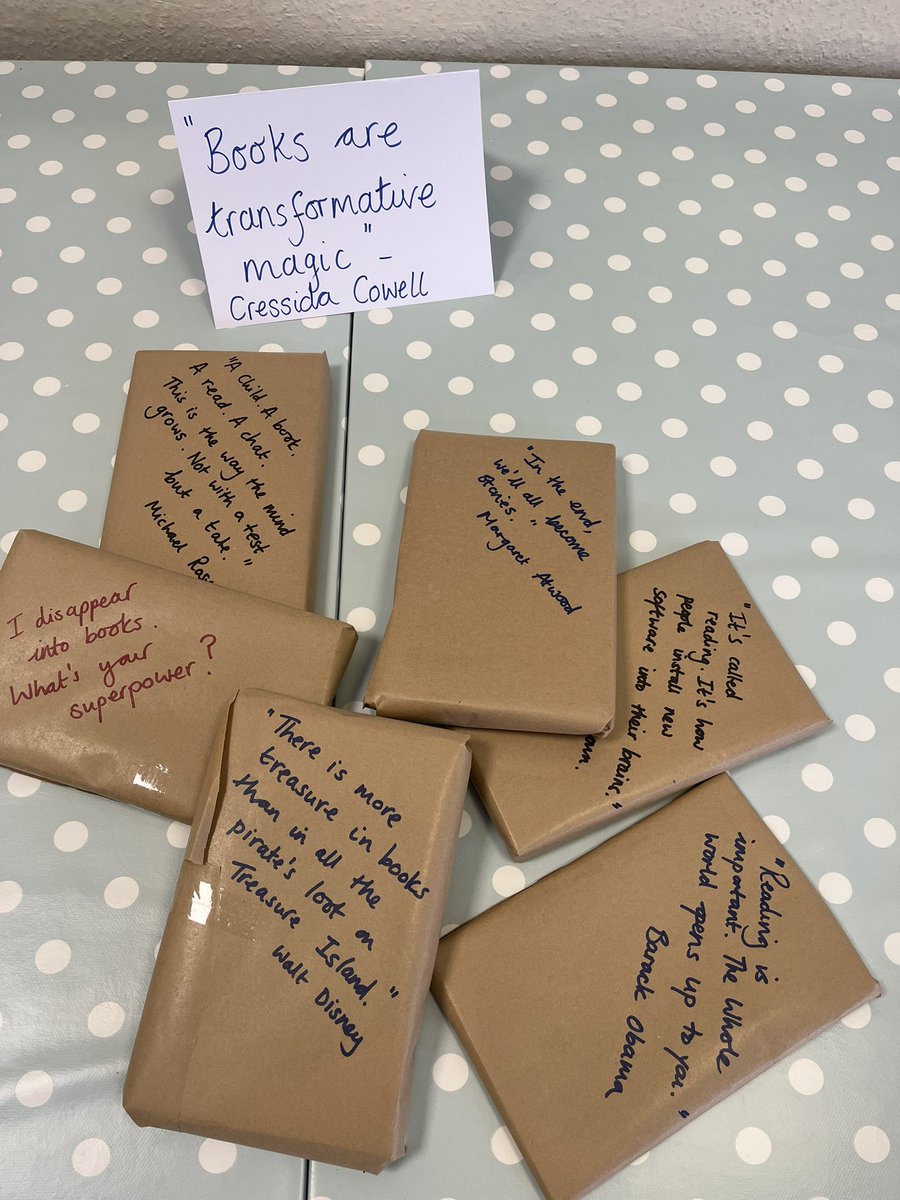 "Books are
transformative
magic" -
Cressida Cowell
"A child. A book.
A read. A chat.
This is the way the mind
grows. Not with a test
but a tale."
Michael
"In the end,
we'll all become
stories."
Margaret Atwood
I disappear
into books.
What's your
superpower?
"It's called
reading. It's how
people install new
software into their brains."
"There is more
treasure in books
than in all the
pirate's loot on
Treasure Island."
Walt Disney
"Reading is
important. The Whole
world opens up to you."
Barack Obama